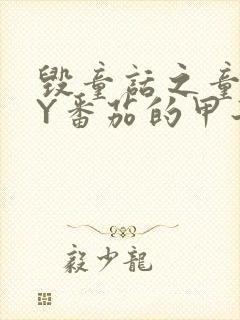 毁童话之童
Y番茄的甲
毅少龍